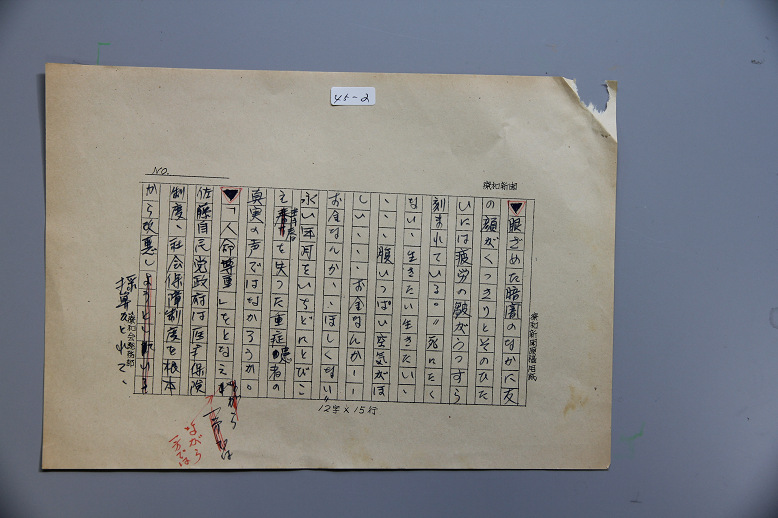 45-2
NO.
療和新聞
療和新聞原稿用紙
▼眼ざめた暗闇のなかに友
の顔がくっきりとそのひた
いには疲労の皺がうっすら
刻まれている。〝死にたく
ない、生きたい生きたい、
、、、腹いっぱい空気がほ
しい、、、、お金なんかーー
お金なんか、、ほしくない〟
永い年月をいちどにとびこ
え青春を失った重症患者の
真実の声ではなかろうか。
▼「人命尊重」をとなえ
ながら
一方では
ながら
一方では
佐藤自民党政府は医療保険
制度、社会保障制度を根本
から改悪しようとしている
採算がとれて、
療和会総務部
12字×15行